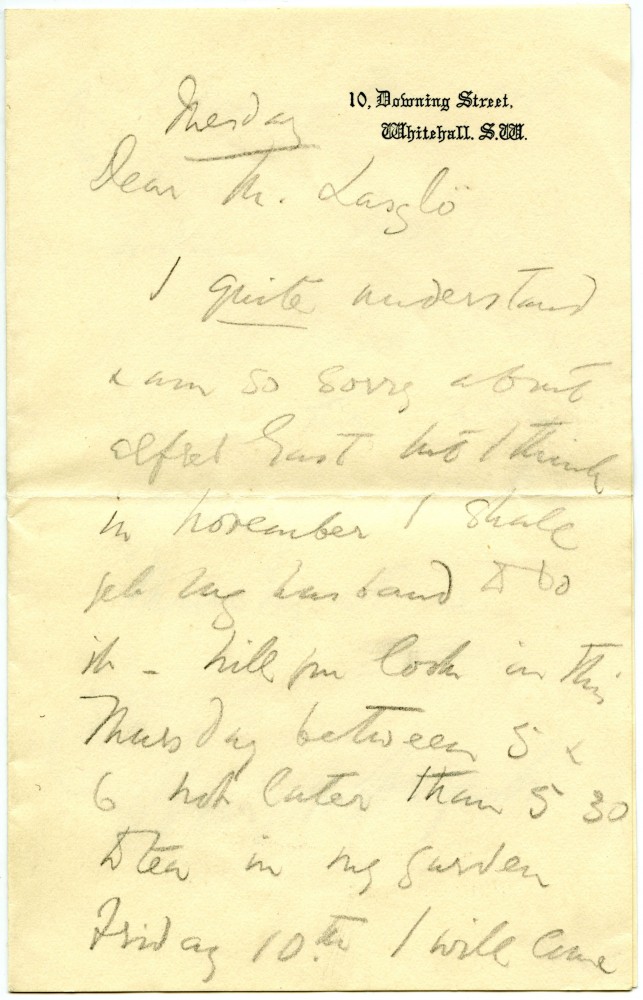 10, Downing Street,
Whitehall. S.W.
Tuesday
Dear M. Laszlö
I quite understand
& am so sorry about
Alfred East but I think
in November I shall
get my husband to do
it – Will you look in this
Thursday between 5 &
6 not later than 5 30
to tea in my garden
Friday 10th I will come